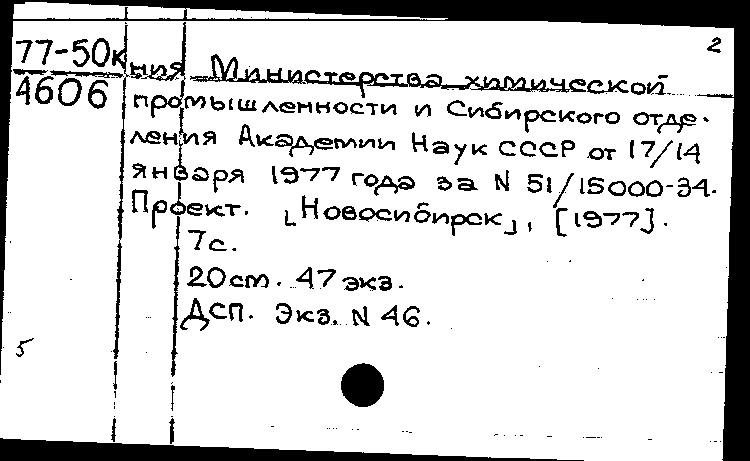 2
77-50к
4606
ния Министерства химической
промышленности и Сибирского отде-
ления Академии Наук СССР от 17/14
января 1977 года за N 51/15000-34.
Проект. [Новосибирск], [1977].
7с.
20см. 47 экз.
ДСП. Экз. N 46.
5